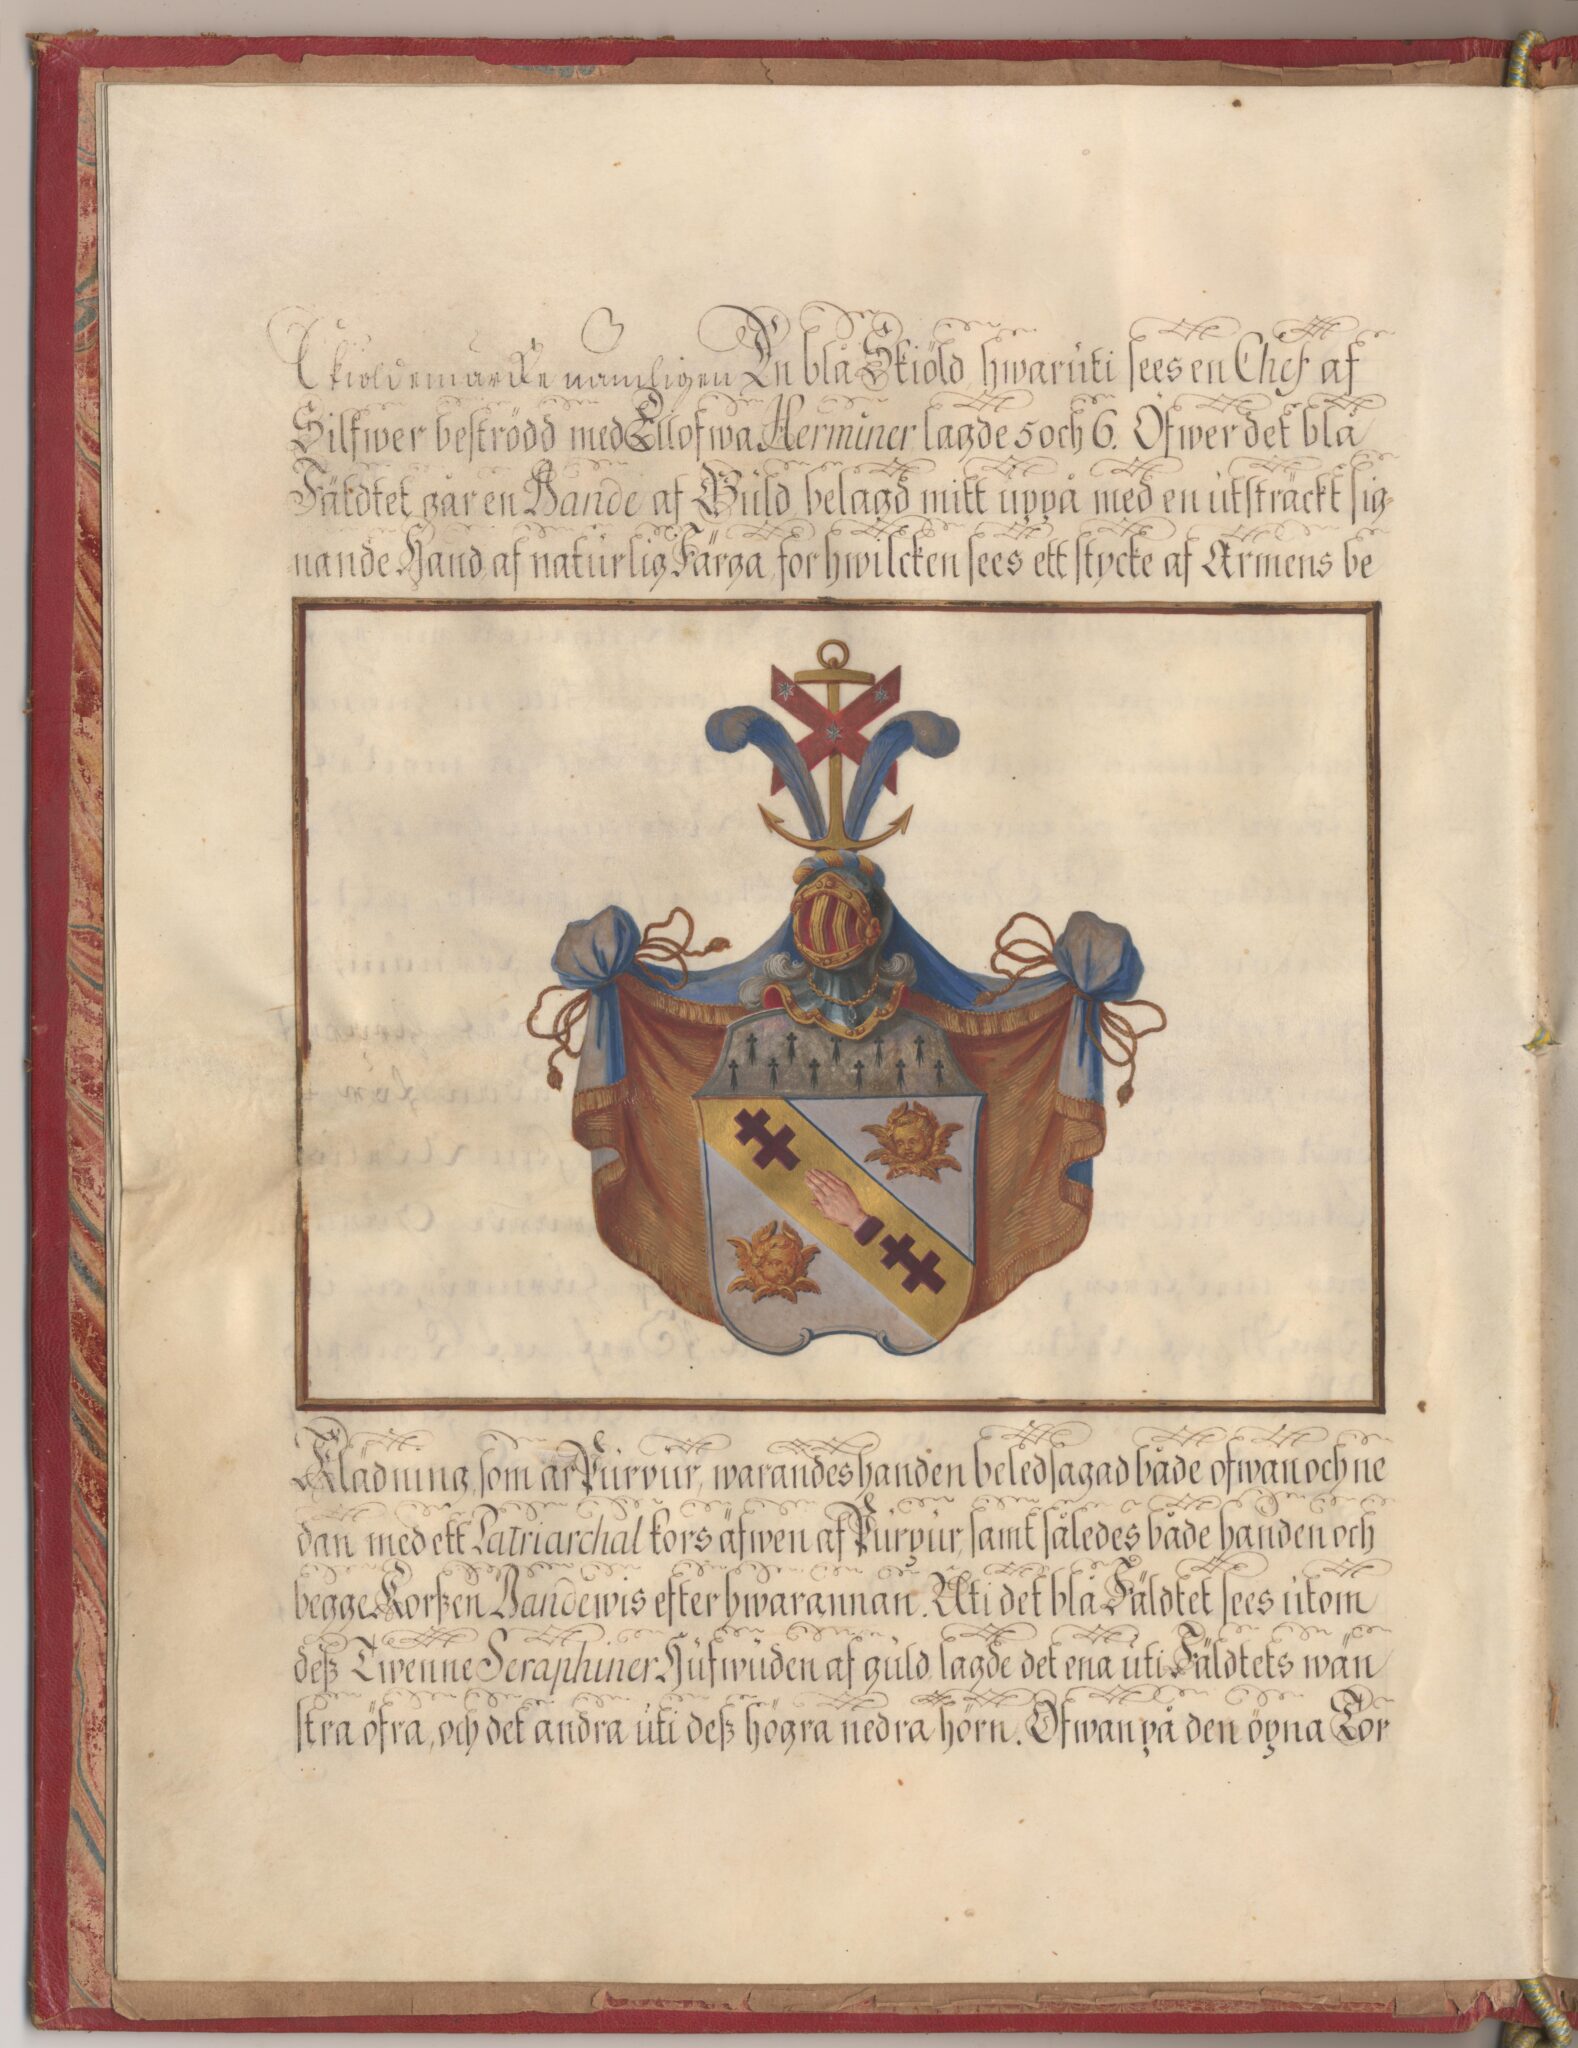 Skioldemärcke nämligen En blå Skiöld, hwarúti sees en Chef af
Silfwer beströdd med Ellofwa Herminer, lagde 5 och 6. Öfwer det blå
Fäldtet går en Bande af Gúld, belagd mitt úppå med en útsträckt sig-
nande Hand, af natúrlig Färga, för hwilcken sees ett stycke af Armens be
Klädning, som är Púrpúr, warandes handen beledsagad både ofwan och ne
dan med ett Patriarchal kors äfwen af Púrpúr, samt således både handen och
begge Korßen Bandewis efter hwarannan. Uti det blå Fäldtet sees útom
deß Twenne Seraphiner Húfwúden af gúld, lagde det ena úti Fäldtets wän
stra öfra, och det andra úti deß högra nedra hörn. Ofwan på den öpna Tor